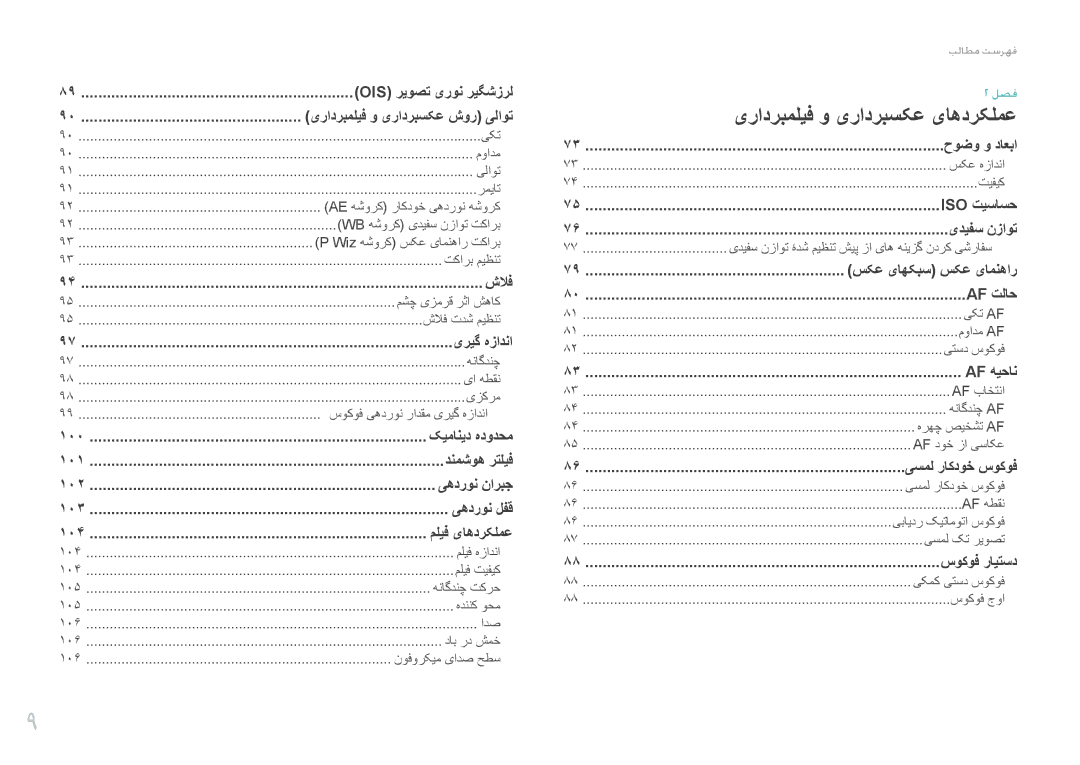 فهرست مطالب
فصل ۲
عملکردهای عکسبرداری و فیلمبرداری
ابعاد و وضوح ........ ۷۳
اندازه عکس ........ ۷۳
کیفیت ........ ۷۴
حساسیت ISO ........ ۷۵
توازن سفیدی ........ ۷۶
سفارشی کردن گزینه های از پیش تنظیم شده توازن سفیدی ........ ۷۷
راهنمای عکس (سبکهای عکس) ........ ۷۹
حالت AF ........ ۸۰
AF تکی ........ ۸۱
AF مداوم ........ ۸۱
فوکوس دستی ........ ۸۲
ناحیه AF ........ ۸۳
انتخاب AF ........ ۸۳
AF چندگانه ........ ۸۴
AF تشخیص چهره ........ ۸۴
عکاسی از خود AF ........ ۸۵
فوکوس خودکار لمسی ........ ۸۶
فوکوس خودکار لمسی ........ ۸۶
نقطه AF ........ ۸۶
فوکوس اتوماتیک ردیابی ........ ۸۶
تصویر تک لمسی ........ ۸۷
دستیار فوکوس ........ ۸۸
فوکوس دستی کمکی ........ ۸۸
اوج فوکوس ........ ۸۸
لرزشگیر نوری تصویر (OIS) ........ ۸۹
توالی (روش عکسبرداری و فیلمبرداری) ........ ۹۰
تکی ........ ۹۰
مداوم ........ ۹۰
توالی ........ ۹۱
تایمر ........ ۹۱
کروشه نوردهی خودکار (کروشه AE) ........ ۹۲
براکت توازن سفیدی (کروشه WB) ........ ۹۲
براکت راهنمای عکس (کروشه P Wiz) ........ ۹۳
تنظیم براکت ........ ۹۳
فلاش ........ ۹۴
کاهش اثر قرمزی چشم ........ ۹۵
تنظیم شدت فلاش ........ ۹۵
اندازه گیری ........ ۹۷
چندگانه ........ ۹۷
نقطه ای ........ ۹۸
مرکزی ........ ۹۸
اندازه گیری مقدار نوردهی فوکوس ........ ۹۹
محدوده دینامیک ........ ۱۰۰
فیلتر هوشمند ........ ۱۰۱
جبران نوردهی ........ ۱۰۲
قفل نوردهی ........ ۱۰۳
عملکردهای فیلم ........ ۱۰۴
اندازه فیلم ........ ۱۰۴
کیفیت فیلم ........ ۱۰۴
حرکت چندگانه ........ ۱۰۵
محو کننده ........ ۱۰۵
صدا ........ ۱۰۶
خمش در باد ........ ۱۰۶
سطح صدای میکروفون ........ ۱۰۶
۹